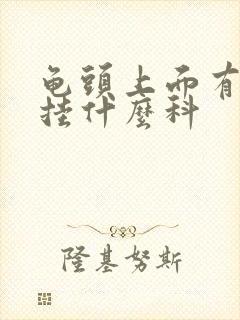 龟頭上面有
挂什麼科
隆基努斯